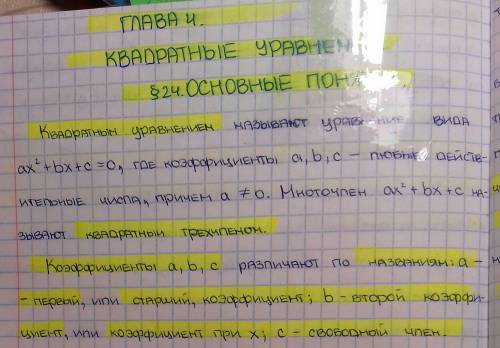 ГЛАВА 4.
КВАДРАТНЫЕ
§24. ОСНОВНЫЕ
Квадратным уравнением называют уравнение вида
ax² + bx + c = 0, где коэффициенты a, b, c – любые действ-
ительные числа, причем a ≠ 0. Многочлен ax² + bx + c на-
зывают квадратным трехчленом.
Коэффициенты a, b, c различают по названиям: a –
– первый, или старший, коэффициент; b – второй коэффи-
циент, или коэффициент при x; c – свободный член.